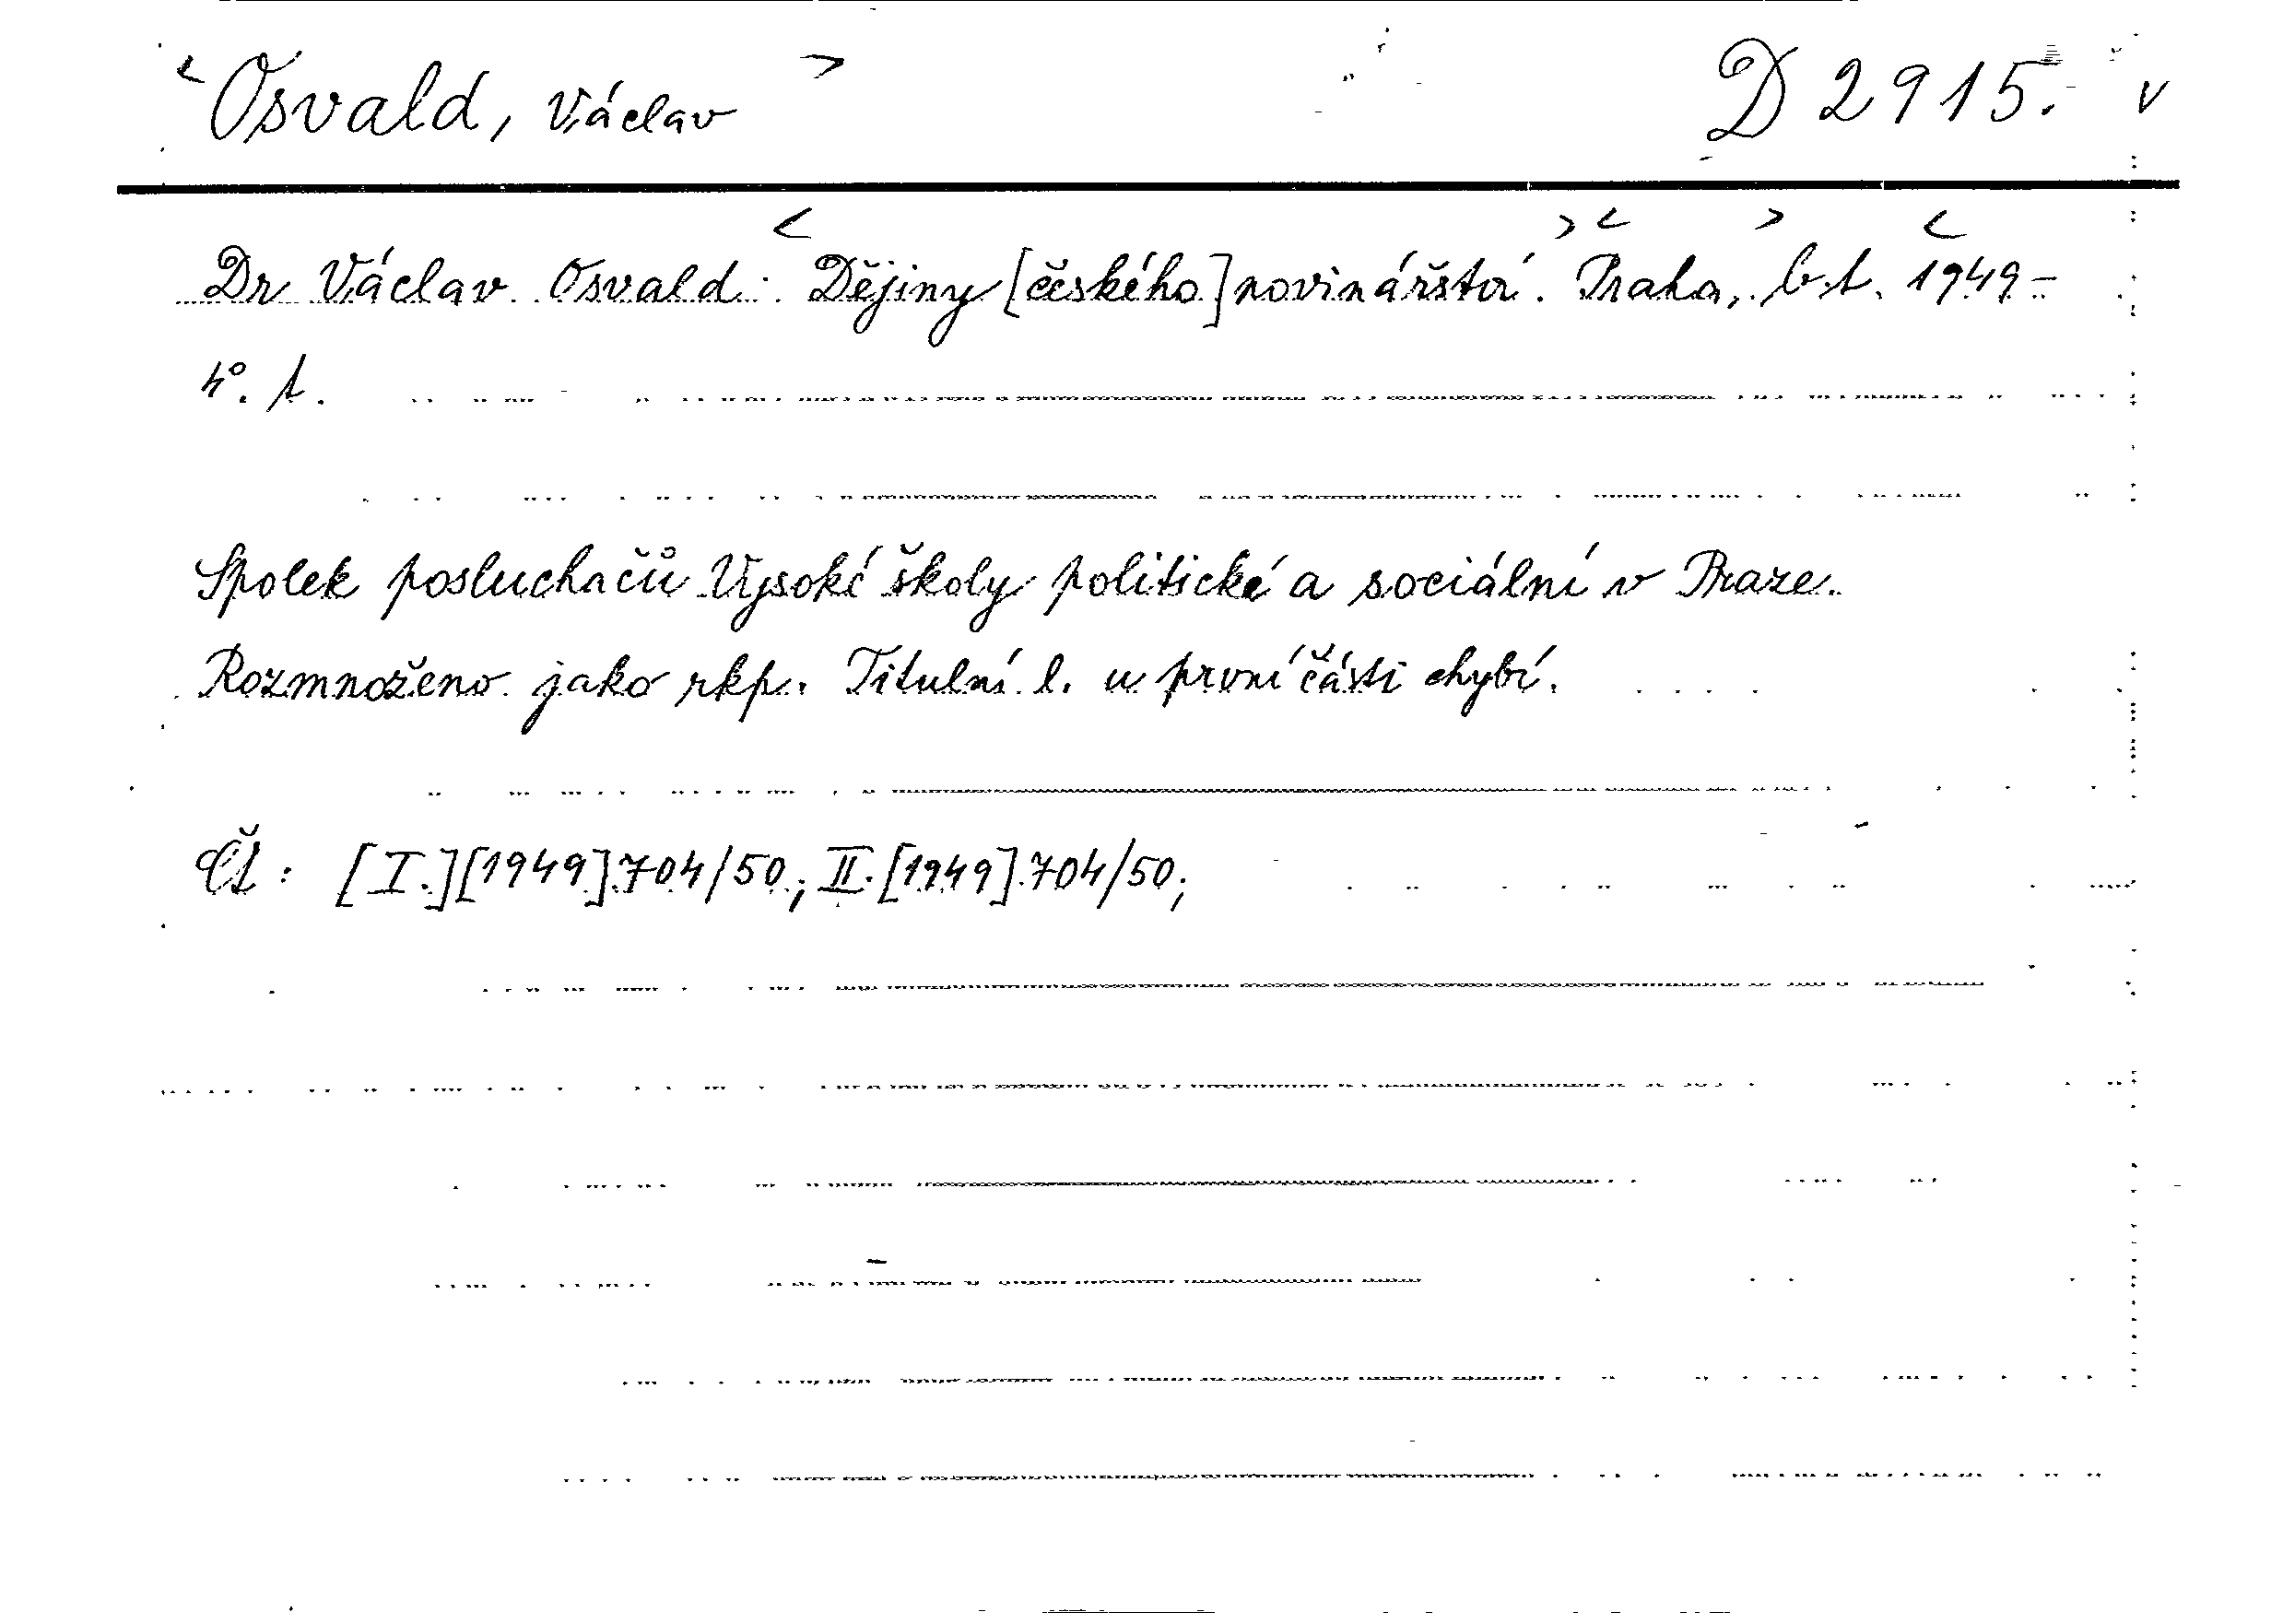 < Osvald, Václav > D 2915. v
< > < > <
Dr Václav Osvald: Dějiny [českého] novinářství. Praha, b.t. 1949-
4°. t.
Spolek posluchačů Vysoké školy politické a sociální v Praze.
Rozmnoženo jako rkp. Titulní l. u první části chybí.
Čt: [I.][1949].704/50; II.[1949].704/50;